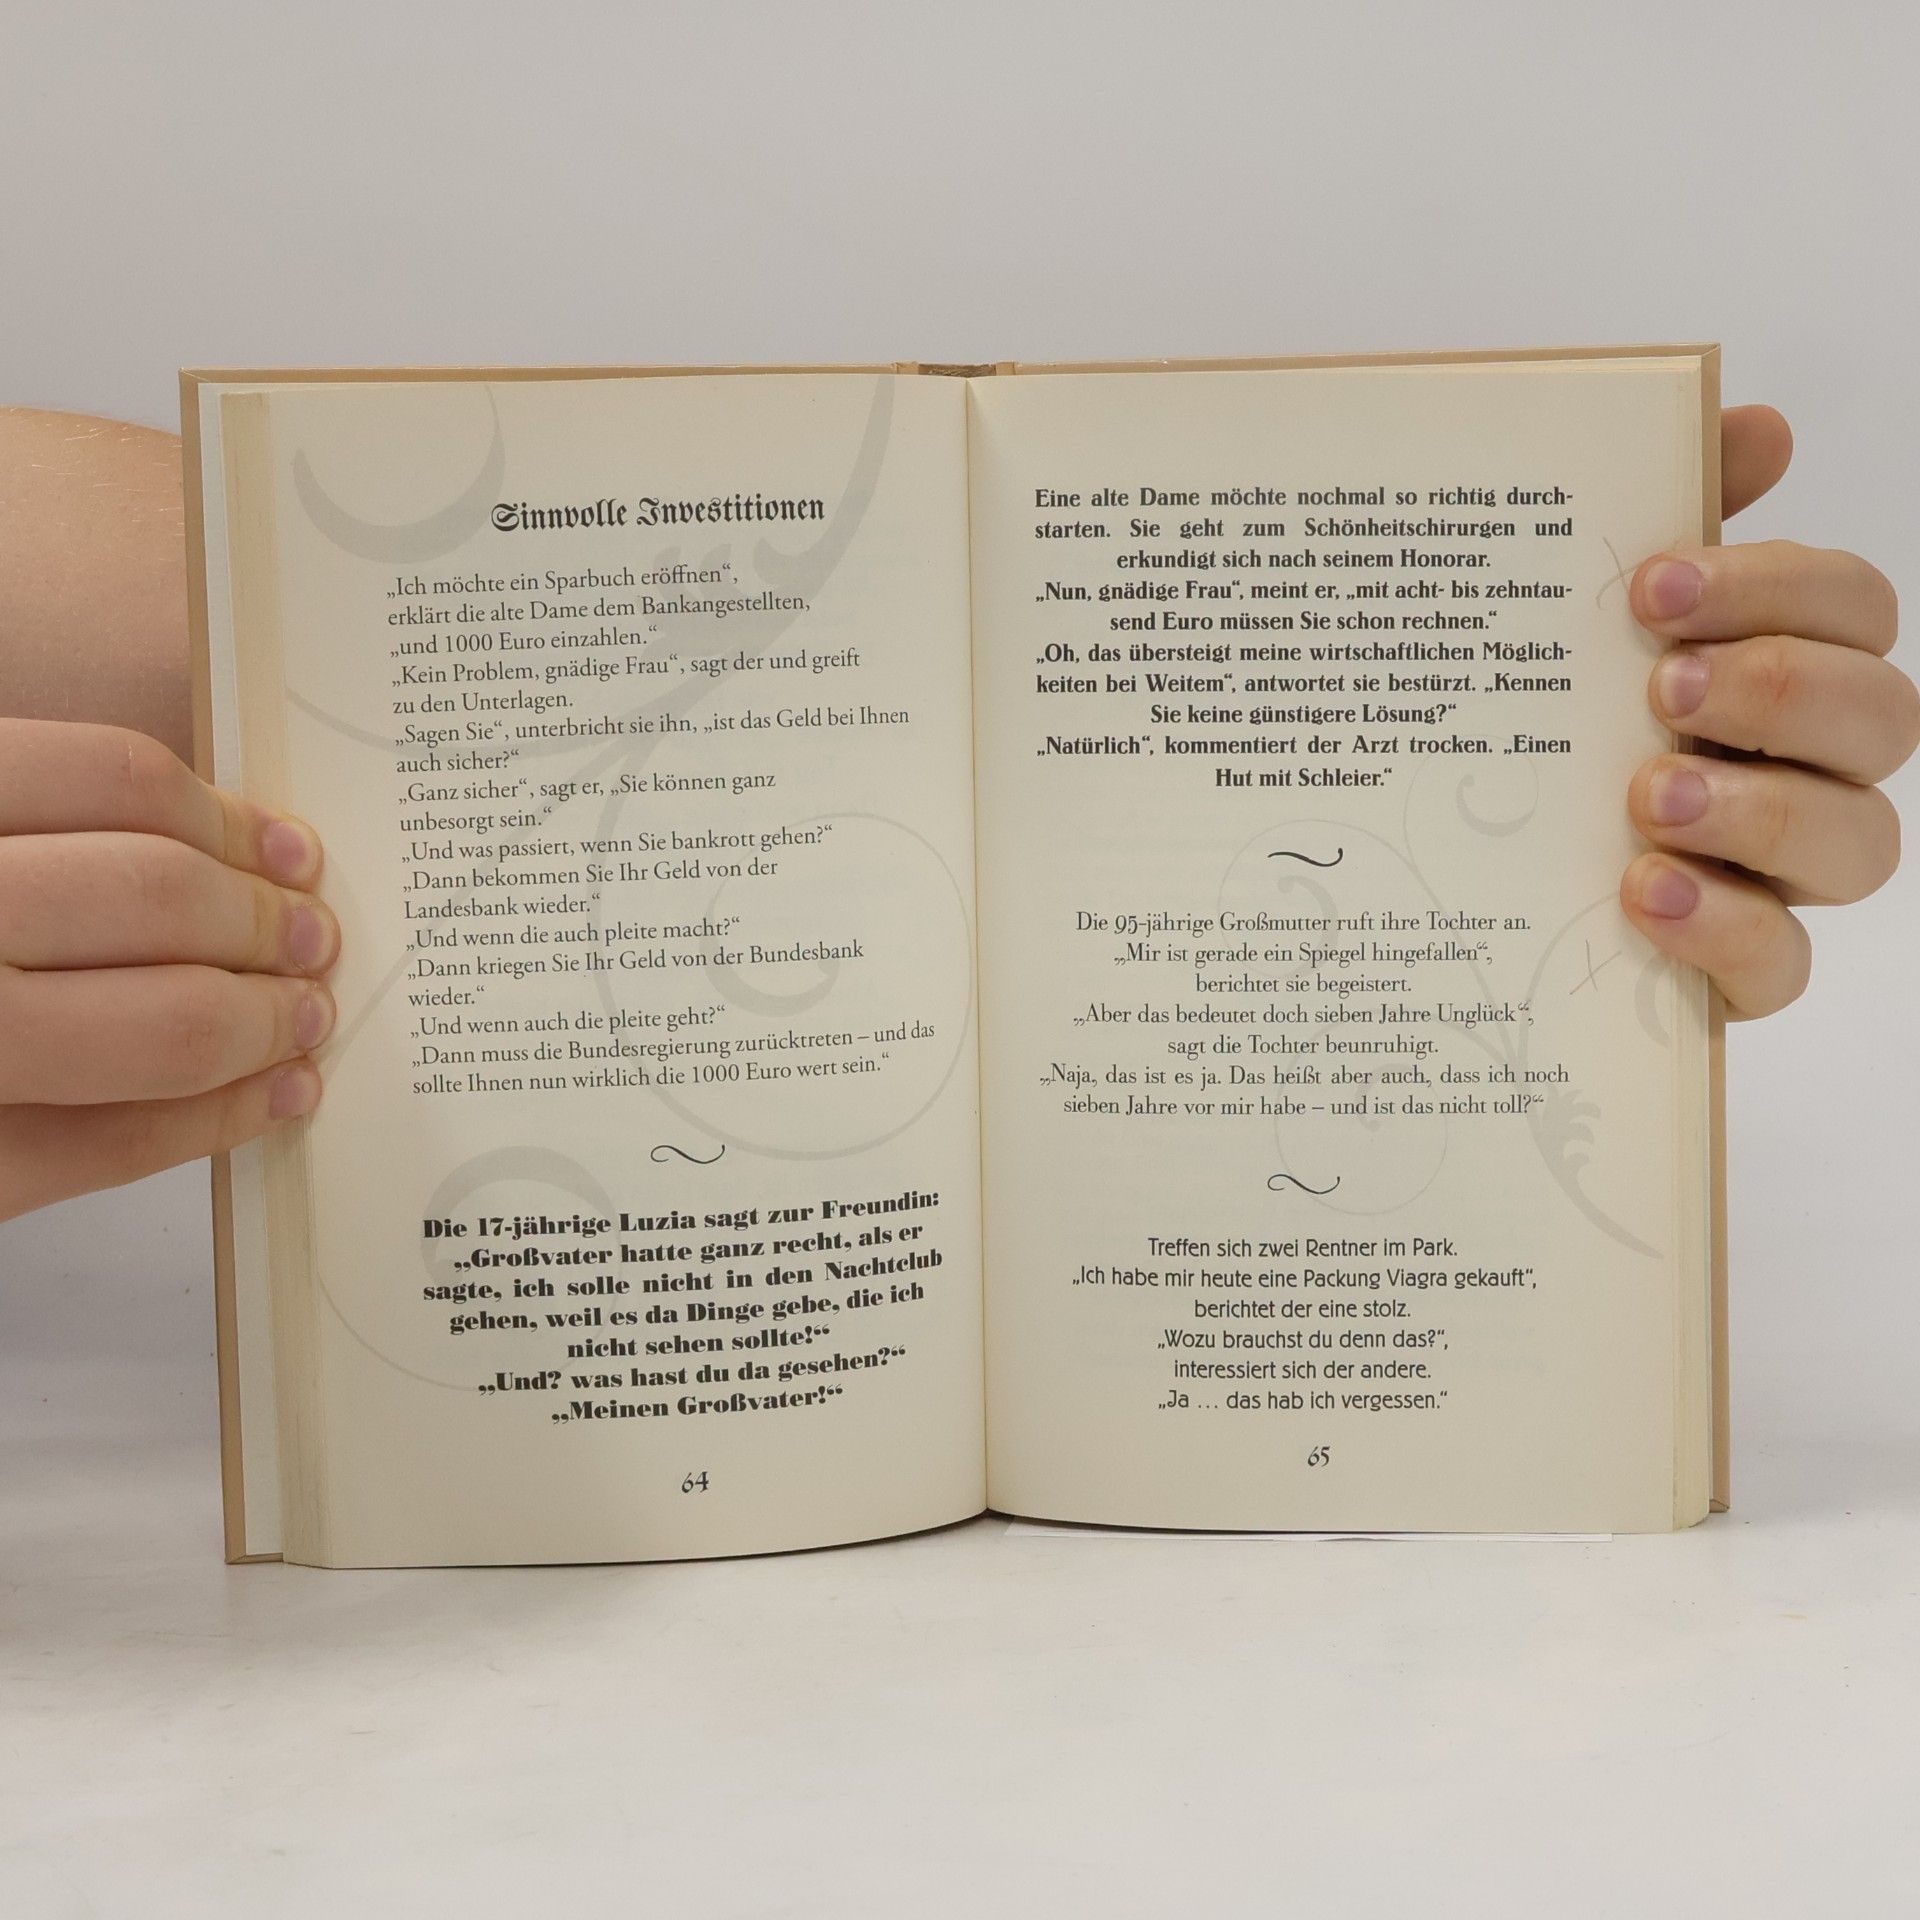 Sinnvolle Investitionen
„Ich möchte ein Sparbuch eröffnen“,
erklärt die alte Dame dem Bankangestellten,
„und 1000 Euro einzahlen.“
„Kein Problem, gnädige Frau“, sagt der und greift
zu den Unterlagen.
„Sagen Sie“, unterbricht sie ihn, „ist das Geld bei Ihnen
auch sicher?“
„Ganz sicher“, sagt er, „Sie können ganz
unbesorgt sein.“
„Und was passiert, wenn Sie bankrott gehen?“
„Dann bekommen Sie Ihr Geld von der
Landesbank wieder.“
„Und wenn die auch pleite macht?“
„Dann kriegen Sie Ihr Geld von der Bundesbank
wieder.“
„Und wenn auch die pleite geht?“
„Dann muss die Bundesregierung zurücktreten – und das
sollte Ihnen nun wirklich die 1000 Euro wert sein.“
Die 17-jährige Luzia sagt zur Freundin:
„Großvater hatte ganz recht, als er
sagte, ich solle nicht in den Nachtclub
gehen, weil es da Dinge gebe, die ich
nicht sehen sollte!“
„Und? was hast du da gesehen?“
„Meinen Großvater!“
64
Eine alte Dame möchte nochmal so richtig durch-
starten. Sie geht zum Schönheitschirurgen und
erkundigt sich nach seinem Honorar.
„Nun, gnädige Frau“, meint er, „mit acht- bis zehntau-
send Euro müssen Sie schon rechnen.“
„Oh, das übersteigt meine wirtschaftlichen Möglich-
keiten bei Weitem“, antwortet sie bestürzt. „Kennen
Sie keine günstigere Lösung?“
„Natürlich“, kommentiert der Arzt trocken. „Einen
Hut mit Schleier.“
Die 95-jährige Großmutter ruft ihre Tochter an.
„Mir ist gerade ein Spiegel hingefallen“,
berichtet sie begeistert.
„Aber das bedeutet doch sieben Jahre Unglück“,
sagt die Tochter beunruhigt.
„Naja, das ist es ja. Das heißt aber auch, dass ich noch
sieben Jahre vor mir habe – und ist das nicht toll?“
Treffen sich zwei Rentner im Park.
„Ich habe mir heute eine Packung Viagra gekauft“,
berichtet der eine stolz.
„Wozu brauchst du denn das?“,
interessiert sich der andere.
„Ja … das hab ich vergessen.“
65